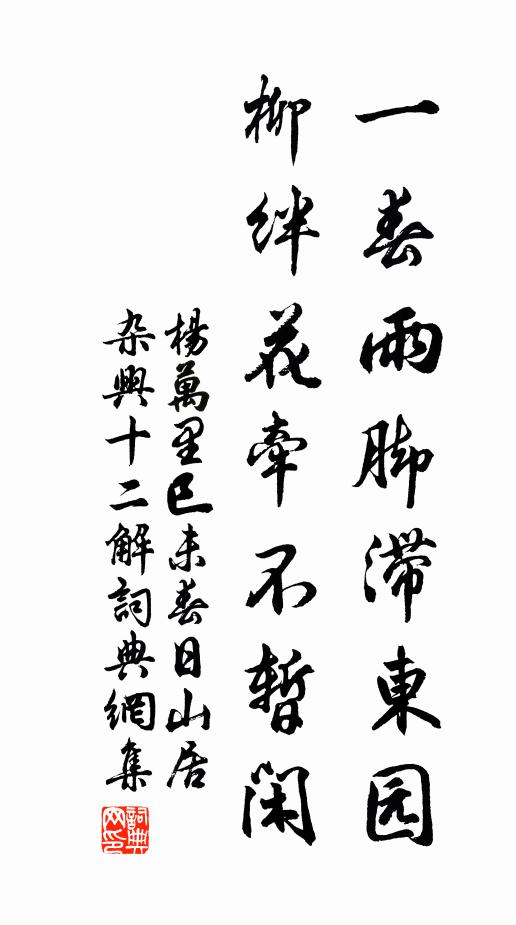 一春雨脚滞東园
柳绊花牽不暫闲
楊萬里已未春日山居
杂興十二解詞典網集
詞典
网印